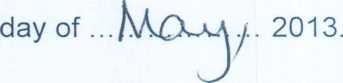 day of ... May, ... 2013.